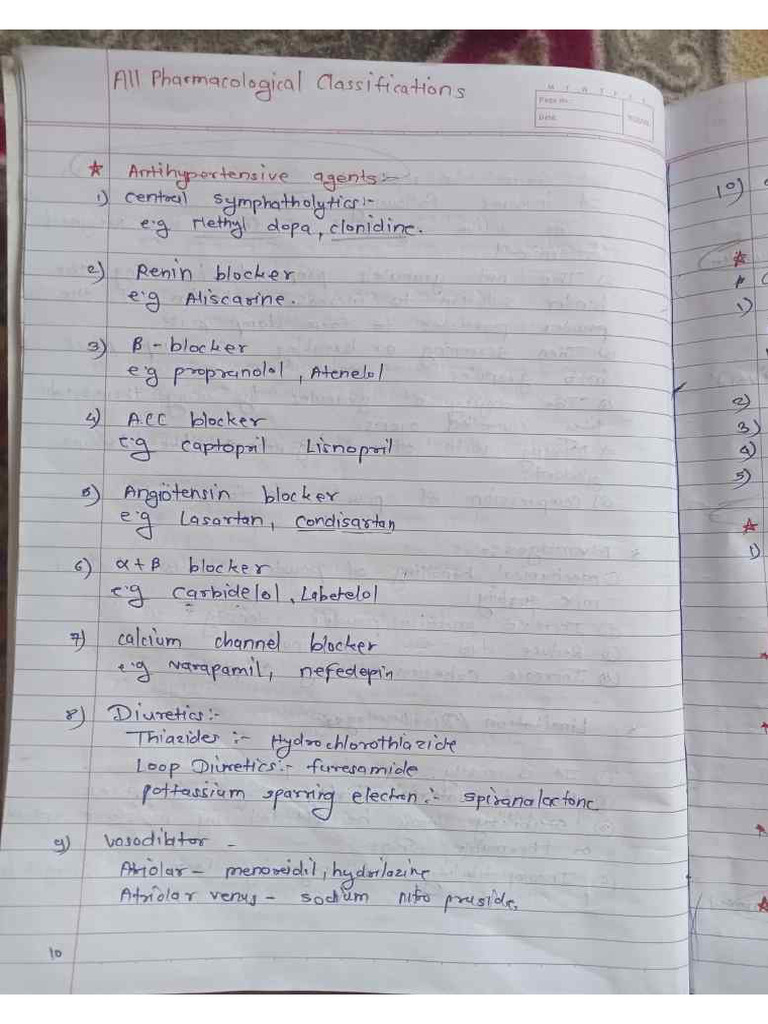 All Pharmacological Classifications
Page No.
Date
★ Antihypertensive agents:-
1) Central symphatholytics:-
e.g Methyl dopa, clonidine.
2) Renin blocker
e.g Aliscarine.
3) β-blocker
e.g propranolol, Atenelol
4) A.CC blocker
e.g captopril Lisnopril
5) Angiotensin blocker
e.g Lasartan, Condisartan
6) α+β blocker
e.g Carbidelol, Labetelol
7) Calcium channel blocker
e.g Varapamil, nefedepin
8) Diuretics:-
Thiazides :- Hydrochlorothiazide
Loop Diuretics:- furesamide
pottassium sparning electen:- spiranalactone
9) Vosodilator -
Atriolar - menoxidil, hydrilazine
Atriolar venus - sodium nitro pruside.
10
10)
★
1)
2)
3)
4)
5)
★
1)